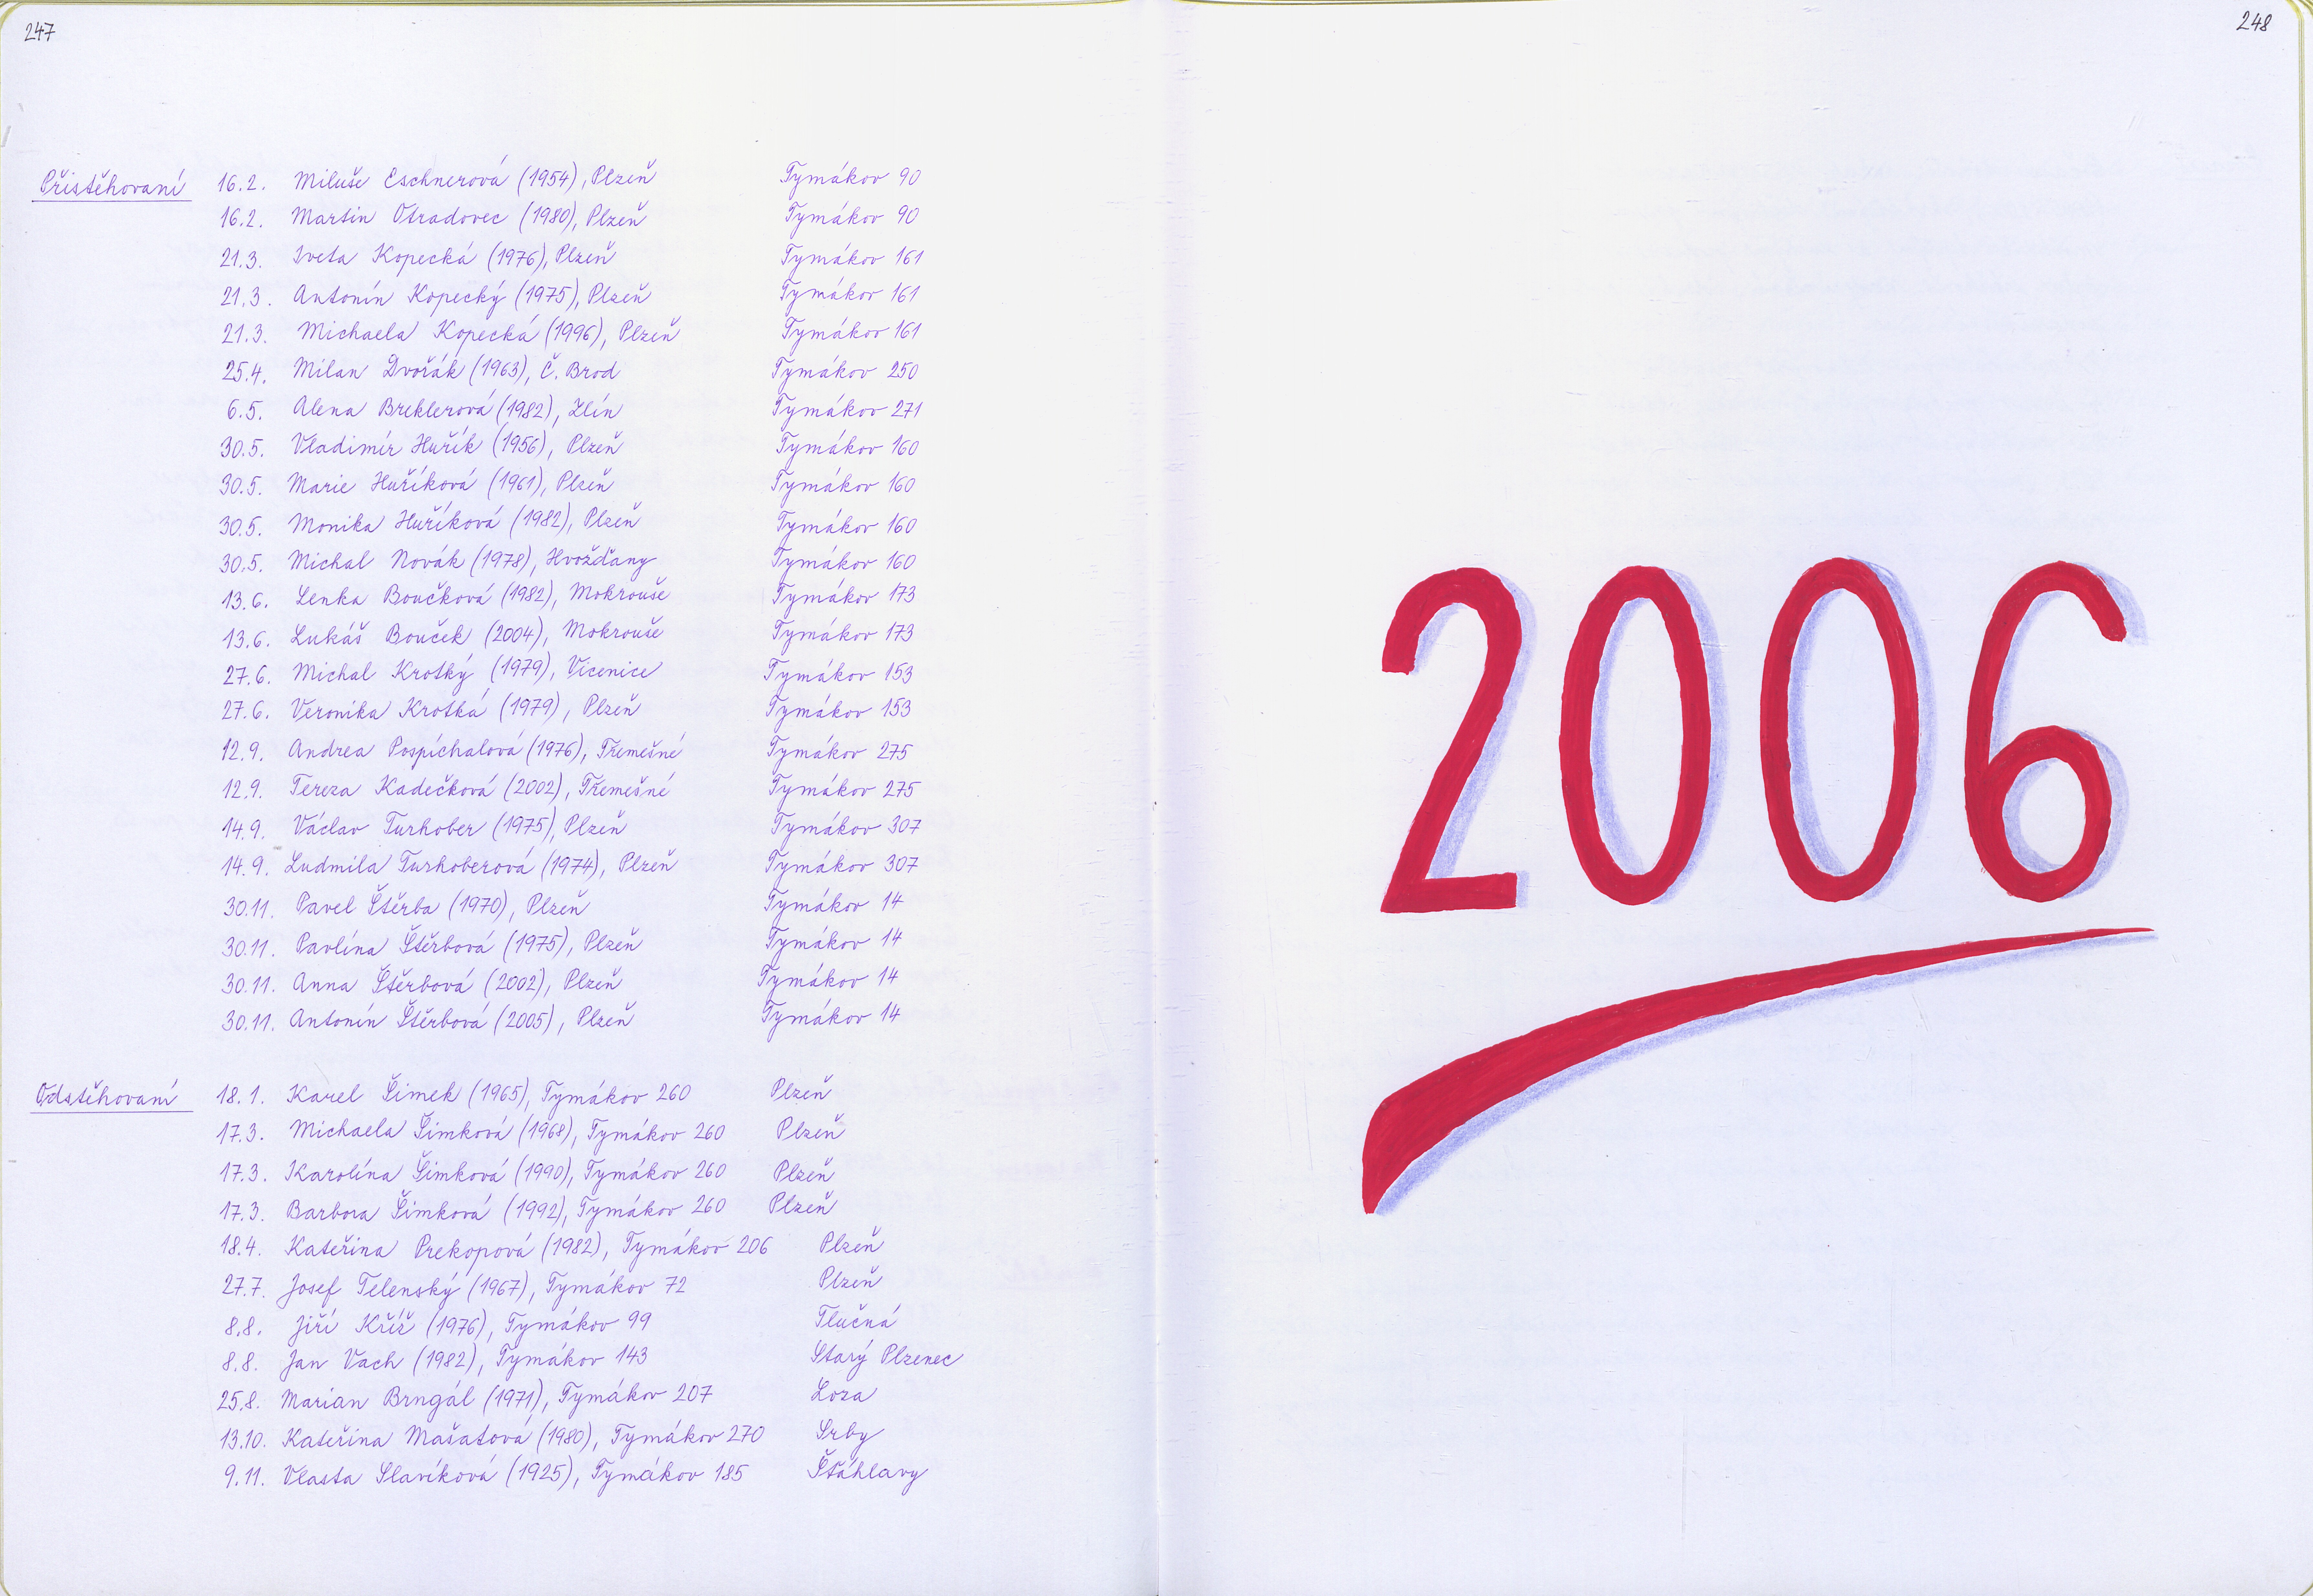 247
Přistěhovaní 16.2. Miluše Eschnerová (1954), Plzeň Tymákov 90
16.2. Martin Otradovec (1980), Plzeň Tymákov 90
21.3. Iveta Kopecká (1976), Plzeň Tymákov 161
21.3. Antonín Kopecký (1975), Plzeň Tymákov 161
21.3. Michaela Kopecká (1996), Plzeň Tymákov 161
25.4. Milan Dvořák (1963), Č. Brod Tymákov 250
6.5. Alena Breklerová (1982), Zlín Tymákov 271
30.5. Vladimír Huřík (1956), Plzeň Tymákov 160
30.5. Marie Huříková (1961), Plzeň Tymákov 160
30.5. Monika Huříková (1982), Plzeň Tymákov 160
30.5. Michal Novák (1978), Hvožďany Tymákov 160
13.6. Lenka Boučková (1982), Mokrouše Tymákov 173
13.6. Lukáš Bouček (2004), Mokrouše Tymákov 173
27.6. Michal Krotký (1979), Vícenice Tymákov 153
27.6. Veronika Krotká (1979), Plzeň Tymákov 153
12.9. Andrea Pospíchalová (1976), Třemešné Tymákov 275
12.9. Tereza Kadečková (2002), Třemešné Tymákov 275
14.9. Václav Turhober (1975), Plzeň Tymákov 307
14.9. Ludmila Turhoberová (1974), Plzeň Tymákov 307
30.11. Pavel Štěrba (1970), Plzeň Tymákov 14
30.11. Pavlína Štěrbová (1975), Plzeň Tymákov 14
30.11. Anna Štěrbová (2002), Plzeň Tymákov 14
30.11. Antonín Štěrbová (2005), Plzeň Tymákov 14
Odstěhovaní 18.1. Karel Šimek (1965), Tymákov 260 Plzeň
17.3. Michaela Šimková (1968), Tymákov 260 Plzeň
17.3. Karolína Šimková (1990), Tymákov 260 Plzeň
17.3. Barbora Šimková (1992), Tymákov 260 Plzeň
18.4. Kateřina Prekopová (1982), Tymákov 206 Plzeň
27.7. Josef Telenský (1967), Tymákov 72 Plzeň
8.8. Jiří Kříž (1976), Tymákov 99 Tlučná
8.8. Jan Vach (1982), Tymákov 143 Starý Plzenec
25.8. Marian Brngál (1971), Tymákov 207 Loza
13.10. Kateřina Mašatová (1980), Tymákov 270 Srby
9.11. Vlasta Slavíková (1925), Tymákov 185 Šťáhlavy
248
2006